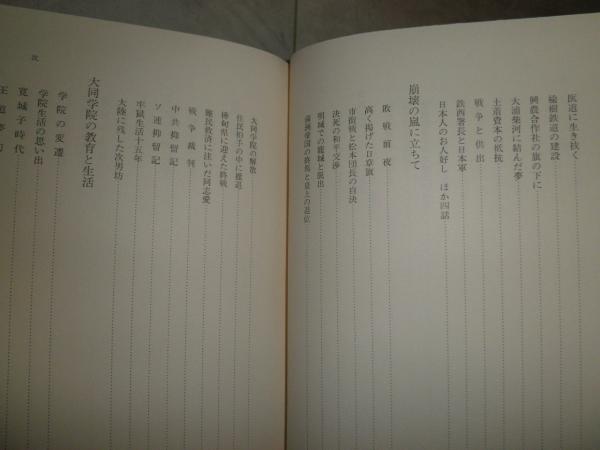 医道に生き抜く
楡樹鉄道の建設
興農合作社の旗の下に
大浦柴河に結んだ夢
土着資本の抵抗
戦争と供出
鉄西署長と日本軍
日本人のお人好し ほか四話
崩壊の嵐に立ちて
敗戦前夜
高く掲げた日章旗
市街戦と松本市長の自決
決死の和平交渉
明城での籠城と脱出
満洲帝国の終焉と皇上の退位
大同学院の解散
住民相手の中に撤退
樺甸県に迎えた終戦
難民救済に注いだ同志愛
戦争裁判
中共抑留記
ソ連抑留記
牢獄生活十五年
大陸に残した次男坊
大同学院の教育と生活
学院の変遷
学院生活の思い出
寛城子時代
王道夢幻
次